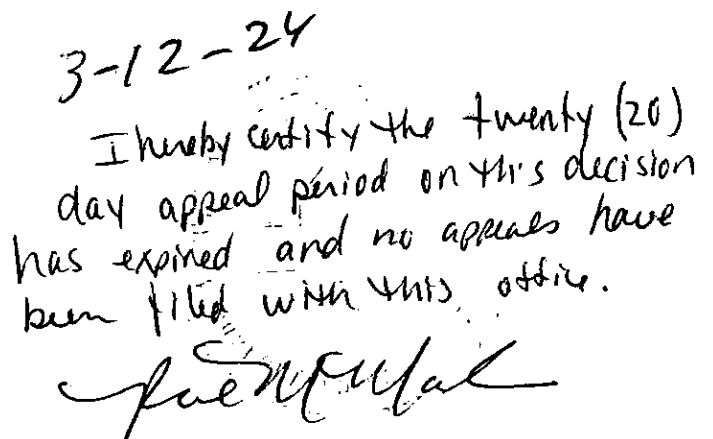 3-12-24
I hereby certify the twenty (20)
day appeal period on this decision
has expired and no appeals have
been filed with this office.